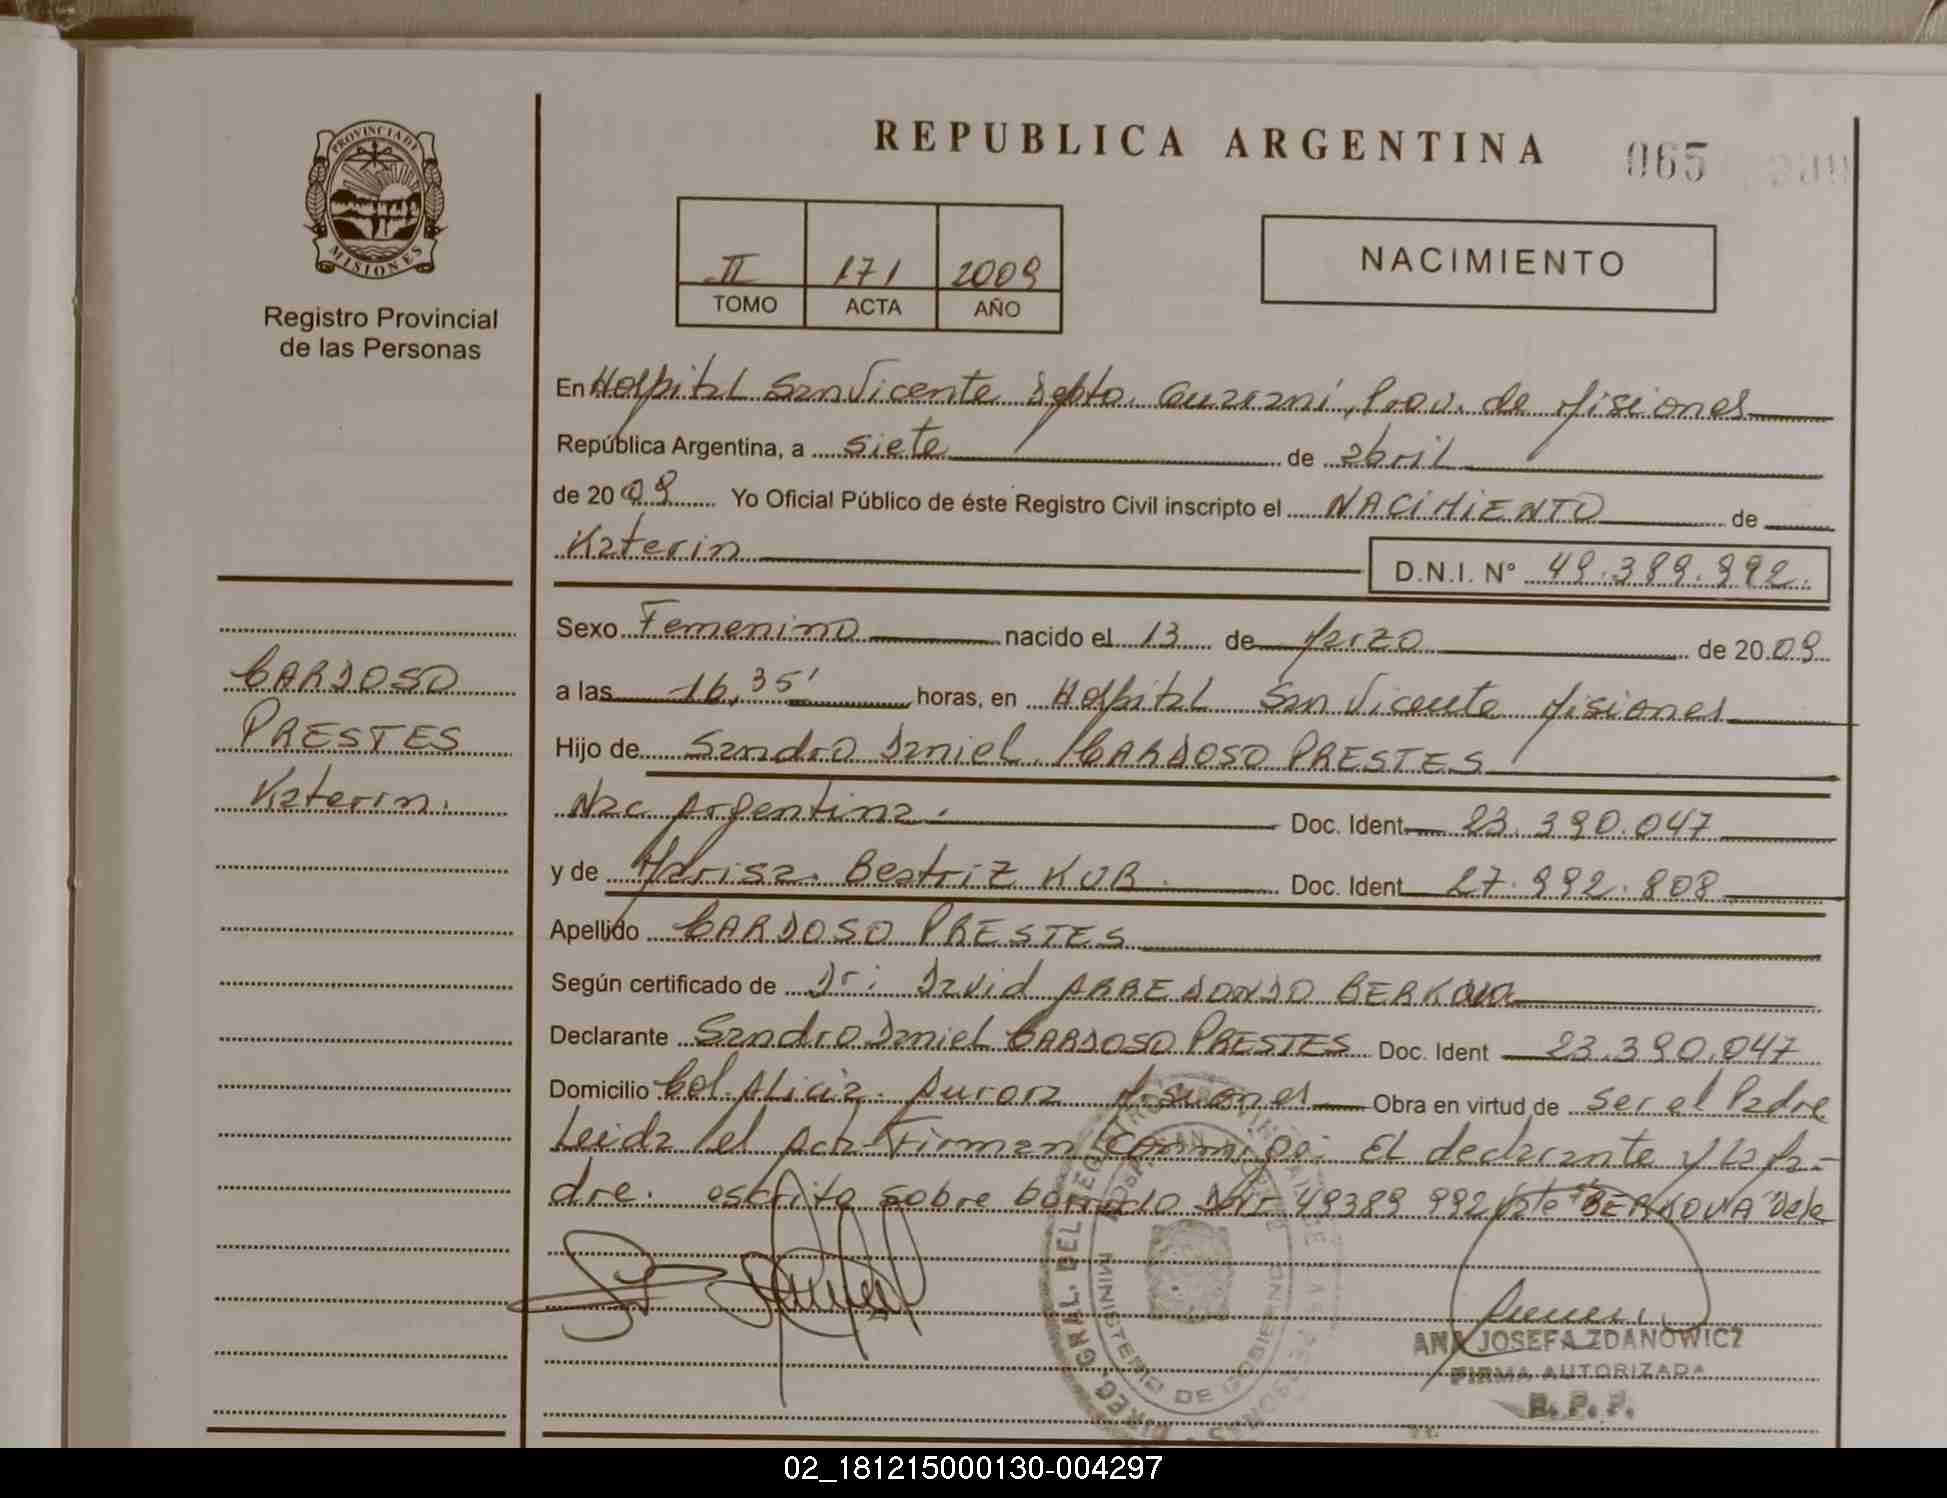 REPUBLICA ARGENTINA
065
PROVINCIA DE
MISIONES
Registro Provincial
de las Personas
II 171 2009
TOMO ACTA AÑO
NACIMIENTO
En Hospital San Vicente Depto. Guaraní, Prov. de Misiones
República Argentina, a siete de abril
de 2009 Yo Oficial Público de éste Registro Civil inscripto el NACIMIENTO de
Katerin
D.N.I. N° 49.389.992.
Sexo Femenino nacido el 13 de Marzo de 20.09
a las 16,35' horas, en Hospital San Vicente Misiones
Hijo de Sandro Daniel CARDOSO PRESTES
Nac Argentina. Doc. Ident. 23.390.047
y de Marisa Beatriz KUR. Doc. Ident. 27.992.808
Apellido CARDOSO PRESTES
Según certificado de Dr: David ARREDONDO BERKOVA
Declarante Sandro Daniel CARDOSO PRESTES Doc. Ident 23.390.047
Domicilio Col. Alicia. Aurora Misiones Obra en virtud de ser el Padre
Leida el Acta Firman conmigo: El declarante y la Ma-
dre. escrito sobre borrado DNI 49389 992 "BERKOVA" Vale
CARDOSO
PRESTES
Katerin.
DIREC. GRAL. DEL REGISTRO
MINISTERIO DE GOBIERNO
ANA JOSEFA ZDANOWICZ
FIRMA AUTORIZADA
R.P.P.
02_181215000130-004297